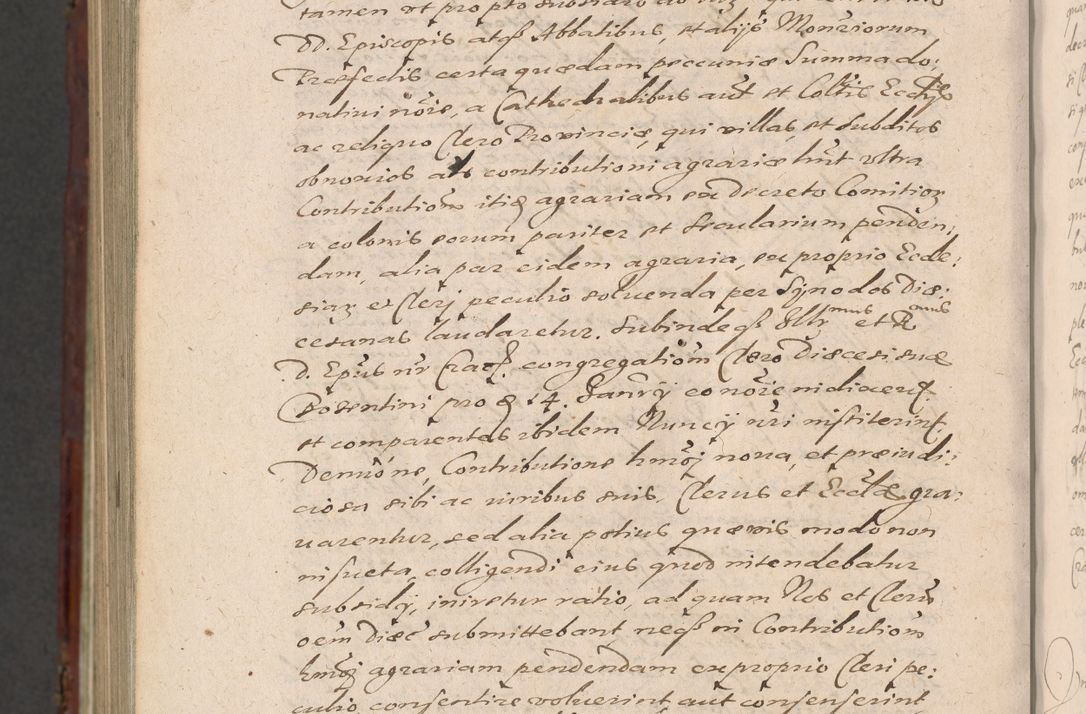 tamen ut pro pto subsidio
DD. Episcopis atq₃ Abbatibus, et alijs Mon̄riorum
Præfectis certa quædam peccuniæ Summa do:
natiui nōie, a Cathedralibus aut̄ et Coll̄tis Eccl̄ijs
ac reliquo Clero Prouinciæ, qui villas, et subditos
obnoxios als contributioni agrariæ hn̄t vltra
Contributiōm itiq̄ agrariam ex decreto Comitior̄
a colonis eorum pariter et sæcularium penden:
dam, alia par eidem agraria, ex proprio Eccle:
siar̄ et Clerj peculio soluenda per Synodos Diæ:
cesanas laudaretur. Subindeq₃ Illr̄mus et Rmus
D. Ep̄us nr̄ Crac̄. congregatiōm Cleri Diæcesi suæ
Posentini pro d̄ 14. Januarij eo nōie indixerit
et comparentes ibidem Nuncij nr̄i institerint.
Demū ne, Contributione hmōj noua, et præiudi:
ciosa sibi ac iuribus suis, Clerus et Eccl̄æ gra:
uarentur, sed alia potius quæuis modo non
insueta, colligendi eius quod intendebatur
subsidij, iniretur ratio, ad quam Nos et Clerū
oēm Diæc̄ submittebant neq₃ in Contributiōm
hmōj agrariam pendendam ex proprio Cleri pe:
culio consentire voluerint aut consenserint